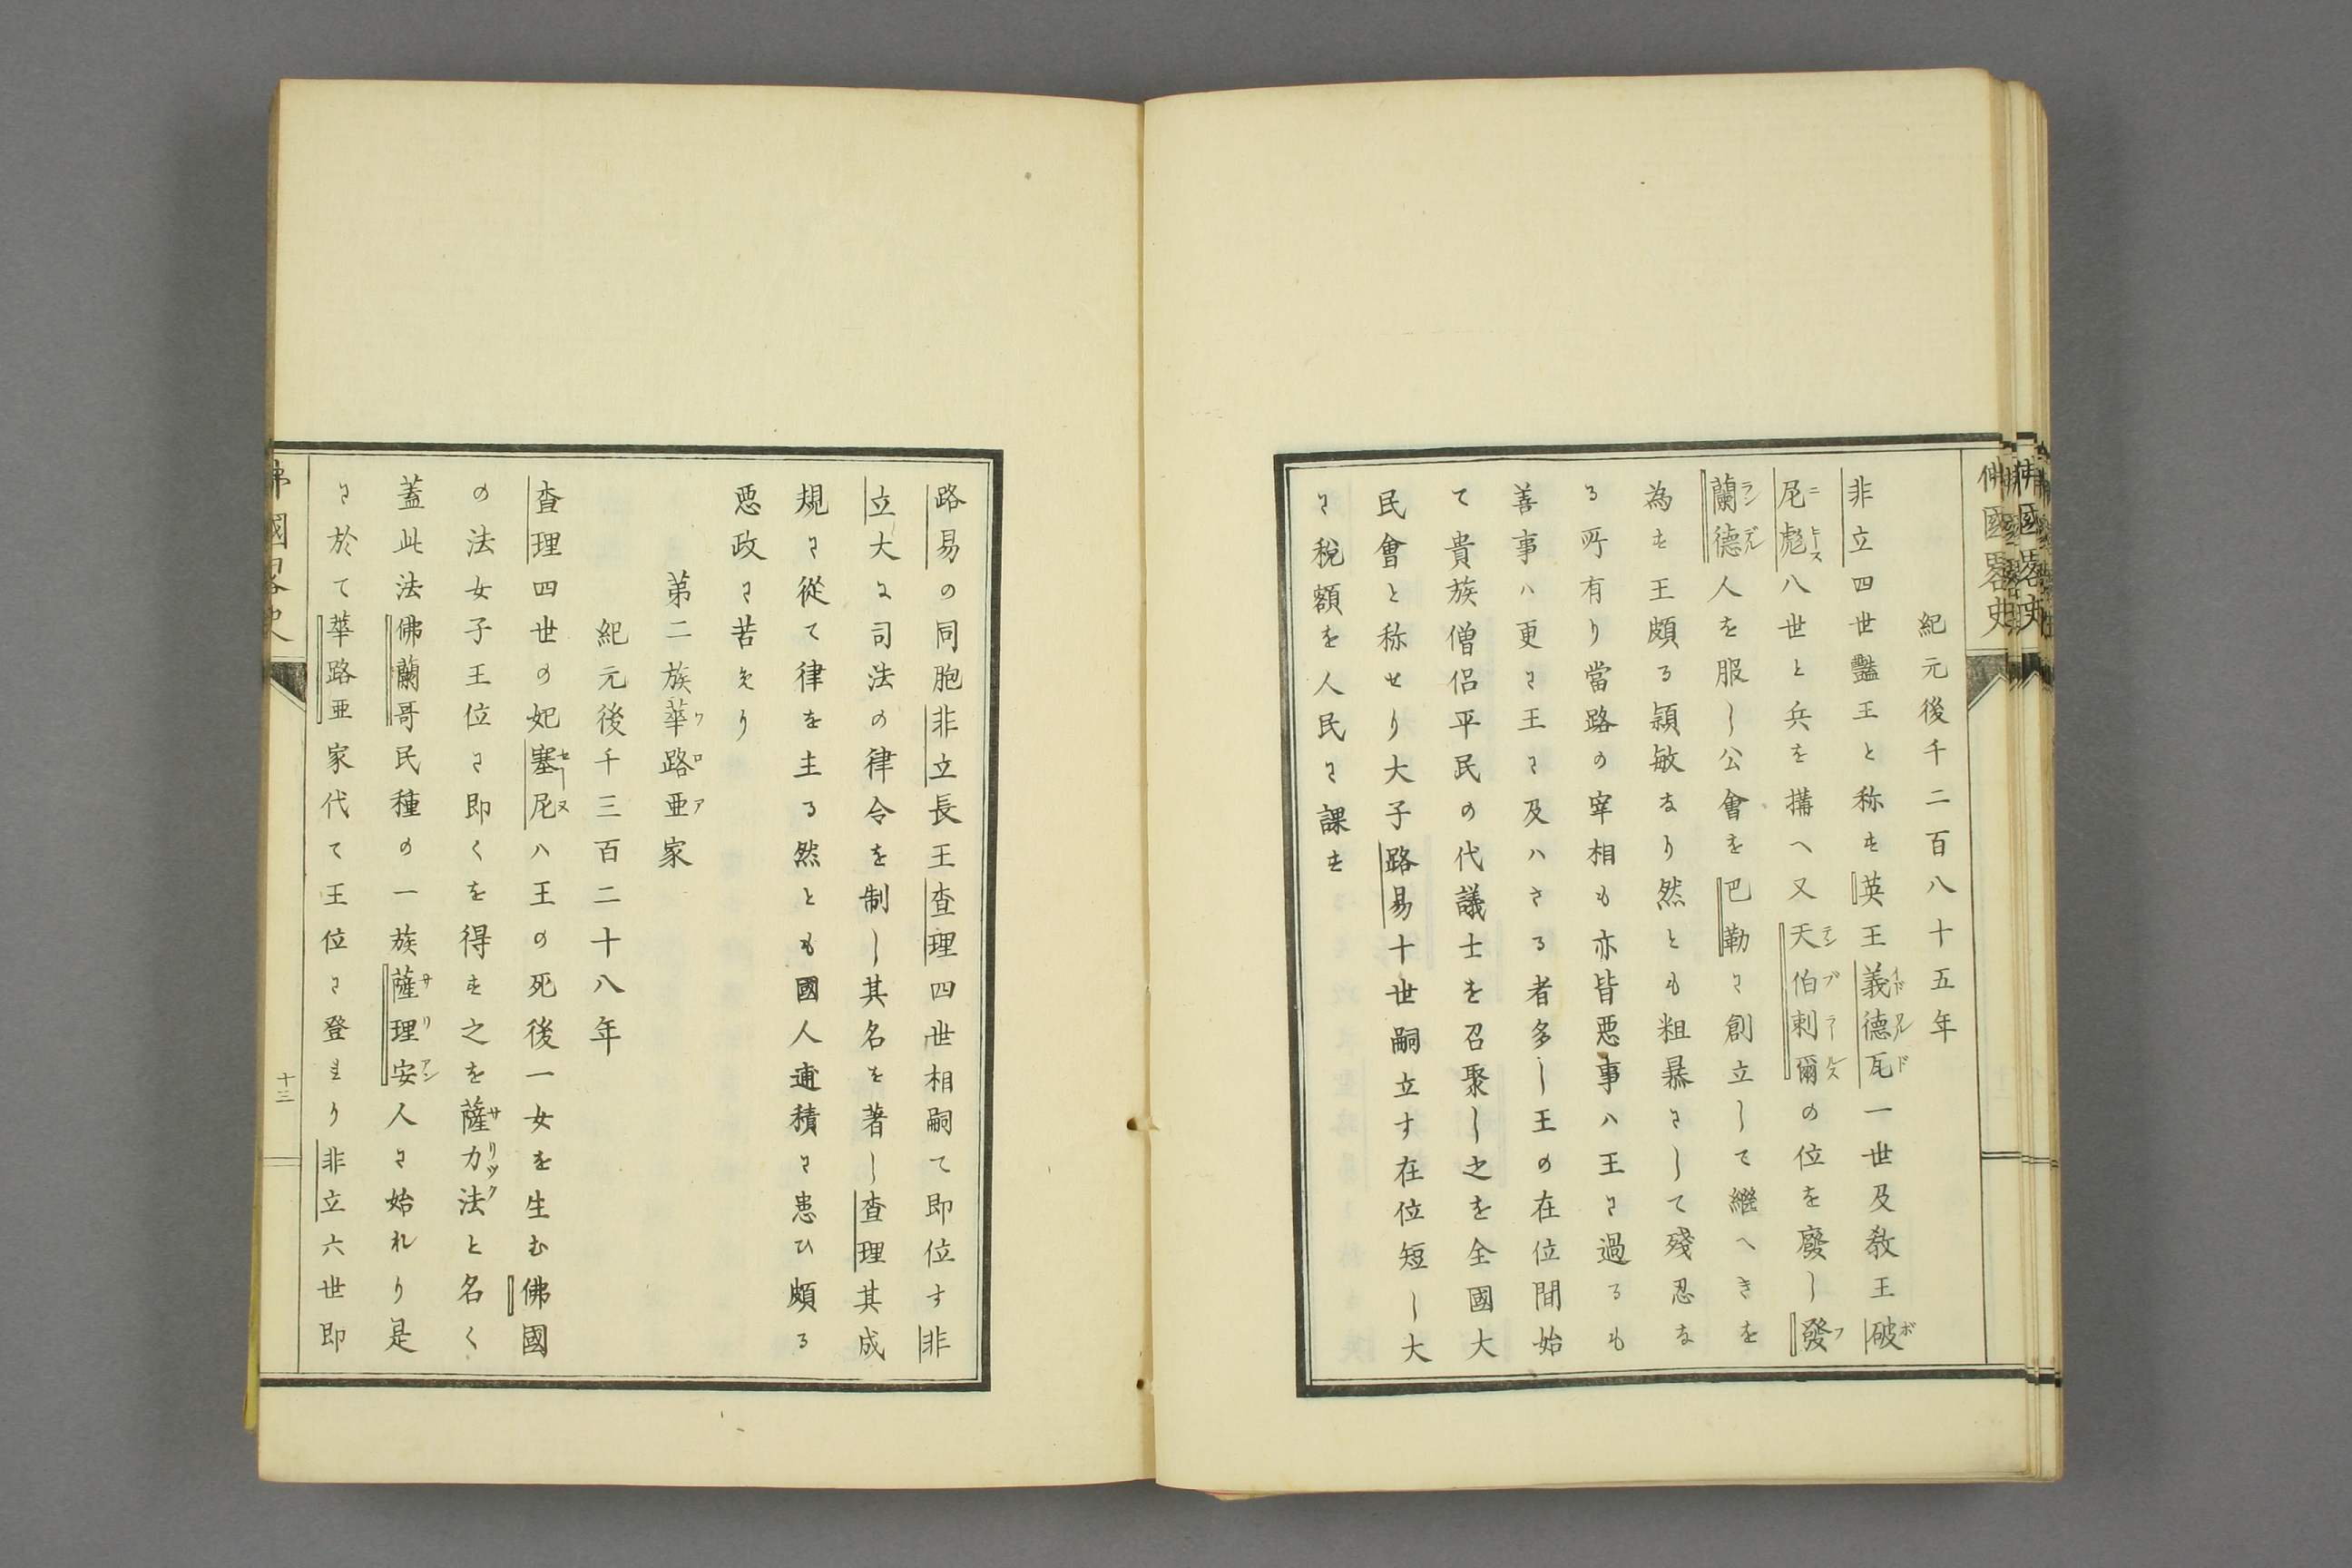 佛國畧史
紀元後千二百八十五年
非立四世豔王と称す英王義徳瓦一世及教王破
尼彪八世と兵を搆へ又天伯剌爾の位を廢し發
蘭徳人を服し公會を巴勒に創立して繼へきを
為す王頗る頴敏なり然とも粗暴にして殘忍な
る所有り當路の宰相も亦皆悪事ハ王に過るも
善事ハ更に王に及ハさる者多し王の在位間始
て貴族僧侶平民の代議士を召聚し之を全國大
民會と称せり大子路易十世嗣立す在位短し大
に税額を人民に課す
路易の同胞非立長王査理四世相嗣て即位す非
立大に司法の律令を制し其名を著し査理其成
規に從て律を主る然とも國人逋積に患ひ頗る
悪政に苦めり
第二族華路亜家
紀元後千三百二十八年
査理四世の妃塞尼ハ王の死後一女を生む佛國
の法女子王位に即くを得す之を薩力法と名く
蓋此法佛蘭哥民種の一族薩理安人に始れり是
に於て華路亜家代て王位に登れり非立六世即
佛國畧史
十三